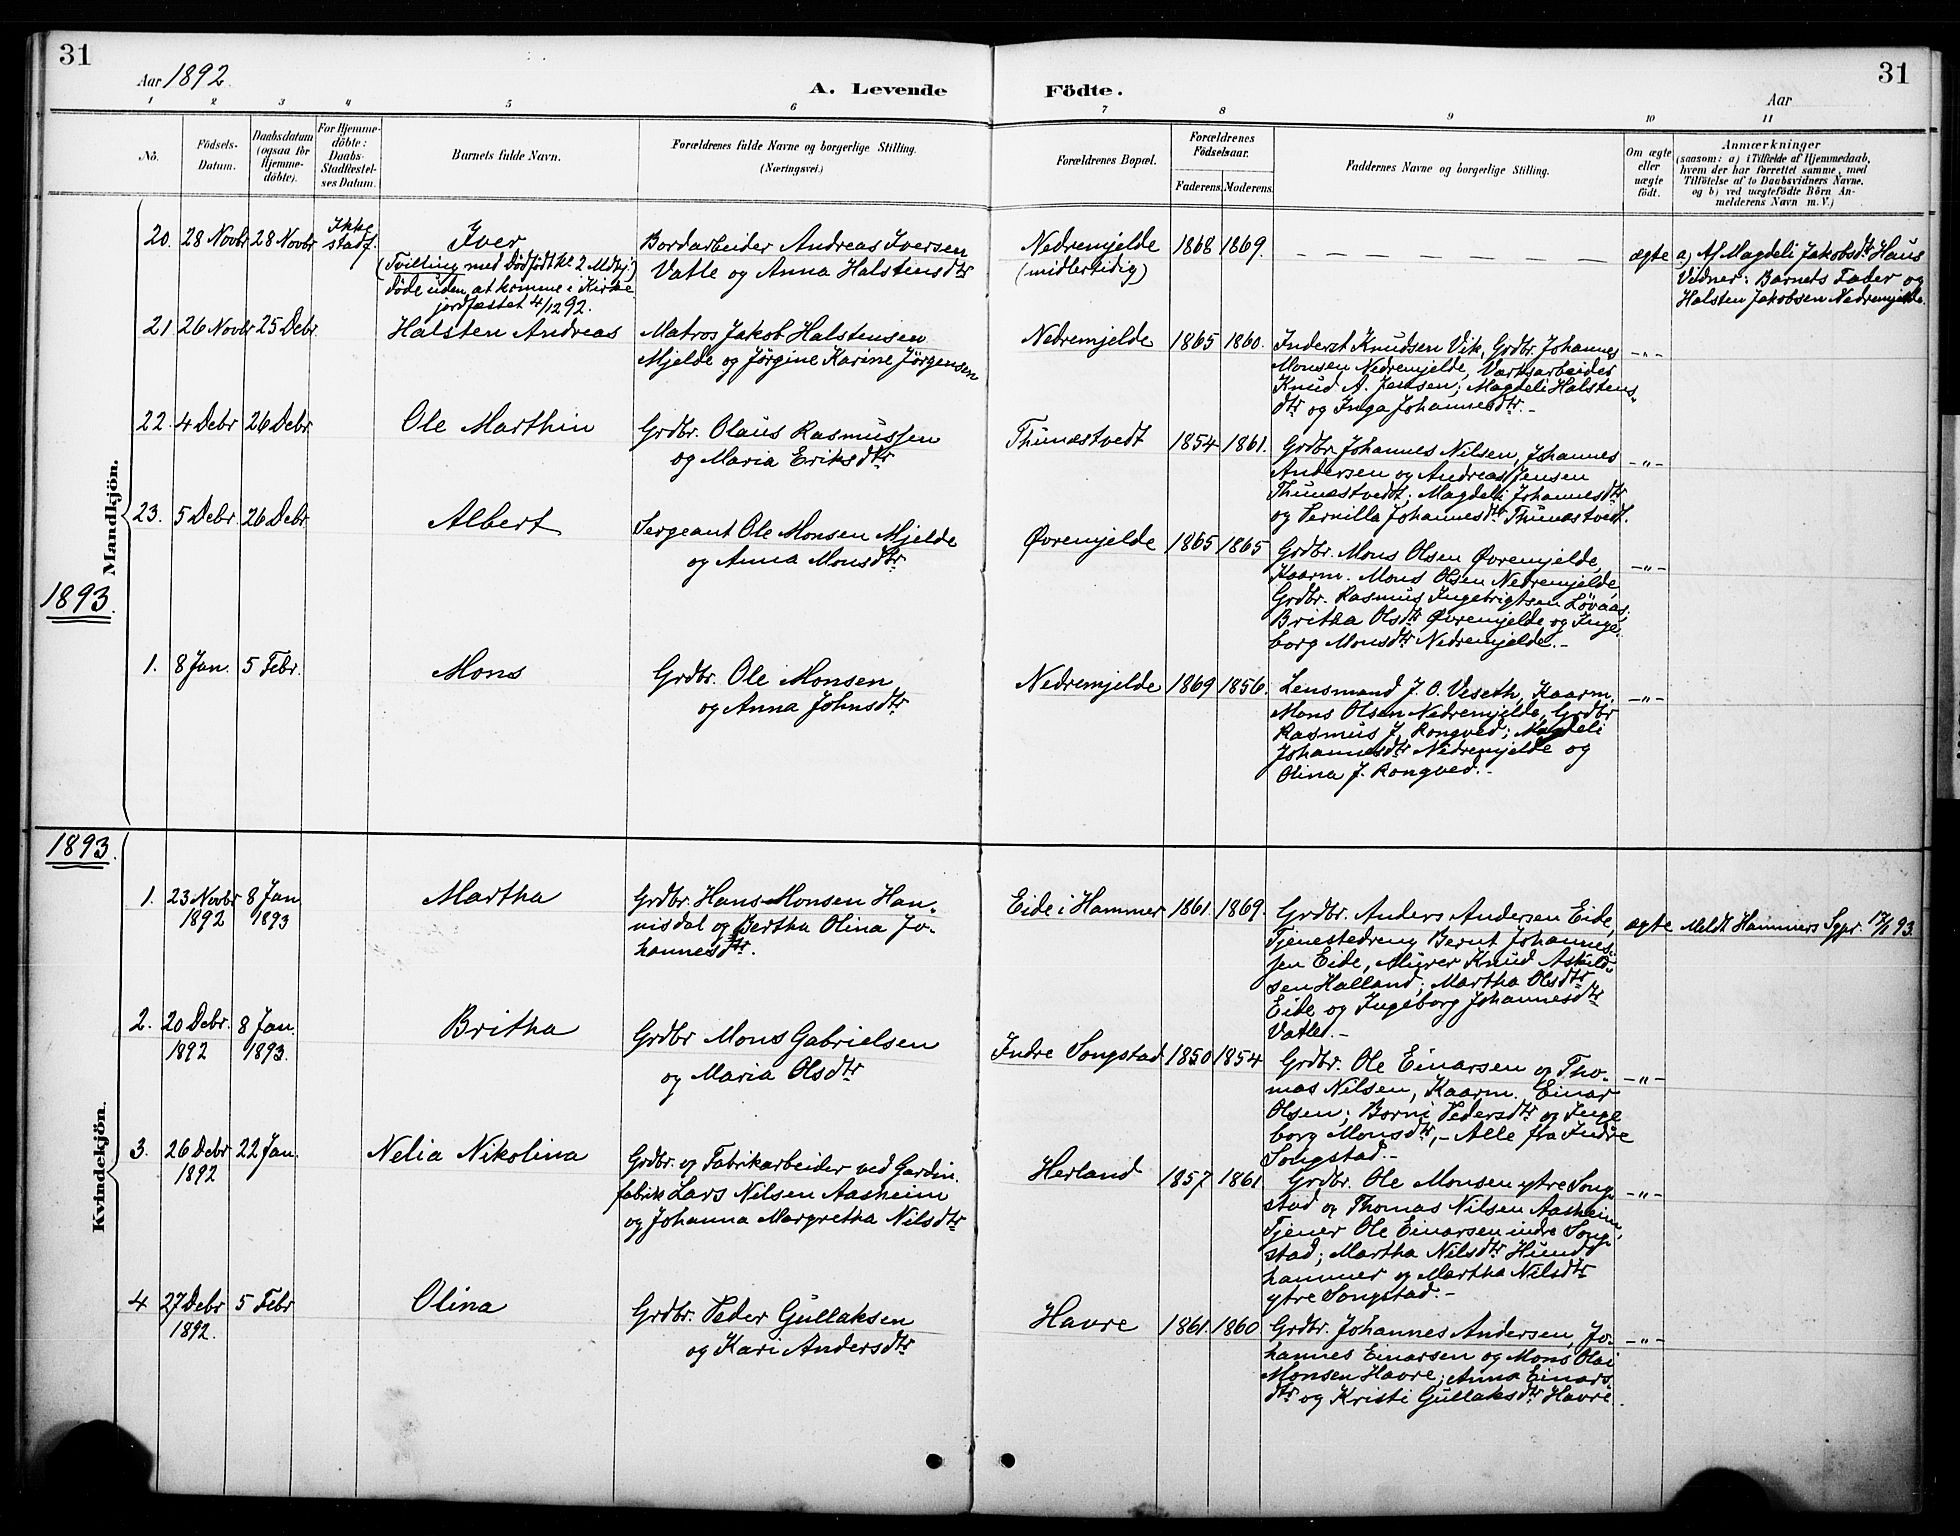 31
Aar 1892.
A. Levende Födte.
Aar
31
1 2 3 4 5 6 7 8 9 10 11
No.
Födsels-
Datum.
Daabsdatum
(ogsaa for
Hjemme-
döbte).
For Hjemme-
döbte:
Daabs-
Stadfæstel-
ses Datum.
Barnets fulde Navn.
Forældrenes fulde Navne og borgerlige Stilling.
(Næringsvei.)
Forældrenes Bopæl.
Forældrenes
Födselsaar.
Faderens. Moderens.
Faddernes Navne og borgerlige Stilling.
Om ægte
eller
uægte
födt.
Anmærkninger
(saasom: a) i Tilfælde af Hjemmedaab,
hvem der har forrettet samme, med
Tilföielse af to Daabsvidners Navne,
og b) ved uægtefödte Börn An-
melderens Navn m. V.)
Mandkjön.
20. 28 Novbr 28 Novbr Ikke
stadf.
Iver
(Tvilling med dödfödt No 2 Mdkj.)
döde uden at komme i Kirke
jordfæstet 4/12 92.
Bordarbeider Andreas Iversen
Vatle og Anna Halstensdtr
Nedremjelde
(midlertidig)
1868 1869.
ægte
a) Af Magdeli Jakobsdtr Haus
Vidner: Barnets Fader og
Halsten Jakobsen Nedremjelde.
21. 26 Novbr 25 Debr.
Halsten Andreas
Matros Jakob Halstensen
Mjelde og Jørgine Karine Jørgensen
Nedremjelde 1865 1860.
Inderst Knudsen Vik, Grdbr. Johannes
Monsen Nedremjelde, Varksarbeider
Knud A. Jensen; Magdeli Halstens-
dtr og Inga Johannesdtr.-
-"-
22. 4 Debr 26 Debr.
Ole Marthin
Grdbr. Olaus Rasmussen
og Maria Eriksdtr
Thunestvedt 1854 1861.
Grdbr. Johannes Nilsen, Johannes
Andersen og Andreas Jensen
Thunestvedt; Magdeli Johannesdtr
og Pernilla Johannesdtr Thunestvedt.
-"-
23. 5 Debr 26 Debr.
Albert
Sergeant Ole Monsen Mjelde
og Anna Monsdtr
Øvremjelde 1865 1865
Grdbr. Mons Olsen Øvremjelde,
Kaarm. Mons Olsen Nedremjelde
Grdbr. Rasmus Ingebrigtsen Løvaas;
Britha Olsdtr Øvremjelde og Inge-
borg Monsdtr Nedremjelde.-
-"-
1893.
1. 8 Jan. 5 Febr.
Mons
Grdbr. Ole Monsen
og Anna Johnsdtr
Nedremjelde 1869 1856.
Lensmand J. O. Veseth, Kaarm.
Mons Olsen Nedremjelde, Grdbr
Rasmus J. Rongved; Magdeli
Johannesdtr Nedremjelde og
Olina J. Rongved.-
-"-
1893.
Kvindekjön.
1. 23 Novbr
1892
8 Jan
1893
Martha
Grdbr. Hans Monsen Han-
nisdal og Bertha Olina Jo-
hannesdtr.
Eide i Hammer 1861 1869.
Grdbr. Anders Andersen Eide,
Tjenestedreng Bernt Johannes-
sen Eide, Murer Knud Askild-
sen Halland; Martha Olsdtr
Eide og Ingeborg Johannesdtr
Vatle.-
ægte
Meldt Hammers Sgpr. 17/1 93.
2. 20 Debr.
1892
8 Jan.
1893.
Britha
Grdbr Mons Gabrielsen
og Maria Olsdtr
Indre Songstad 1850 1854
Grdbr. Ole Einarsen og Tho-
mas Nilsen, Kaarm. Einar
Olsen; Borni Pedersdtr og Inge
borg Monsdtr,- Alle fra Indre
Songstad.-
-"-
3. 26 Debr
1892
22 Jan.
Nelia Nikolina
Grdbr. og Fabrikarbeider ved Gardin-
fabrik Lars Nilsen Aasheim
og Johanna Margretha Nilsdtr
Herland 1857 1861
Grdbr. Ole Monsen ytre Song-
stad og Thomas Nilsen Aasheim,
Tjener Ole Einarsen indre Song-
stad; Martha Nilsdtr Hund-
hammer og Martha Nilsdtr
ytre Songstad.-
-"-
4 27 Debr
1892.
5 Febr
Olina
Grdbr. Peder Gullaksen
og Kari Andersdtr
Havre 1861. 1860
Grdbr. Johannes Andersen, Jo-
hannes Einarsen og Mons Olai
Monsen Havre; Anna Einars-
dtr og Kristi Gullaksdtr Havre.
-"-